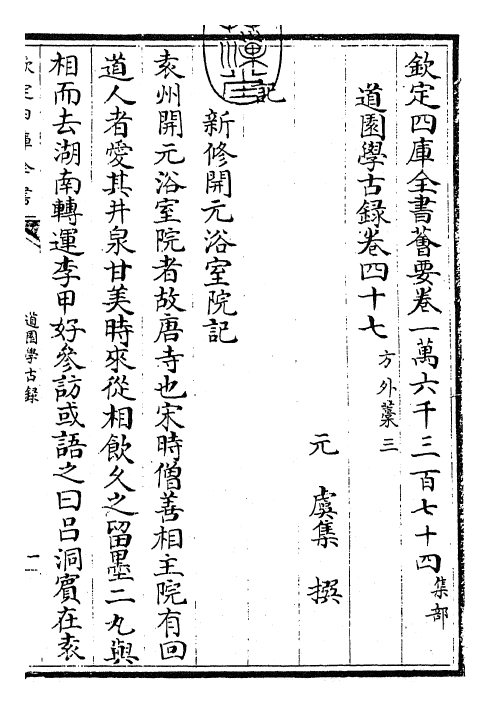 欽定四庫全書薈要卷一萬六千三百七十四 集部
道園學古録卷四十七 方外藁三
元 虞集 撰
記
新修開元浴室院記
袁州開元浴室院者故唐寺也宋時僧善相主院有回
道人者愛其井泉甘美時來從相飲久之留墨二丸與
相而去湖南轉運李甲好參訪或語之曰呂洞賓在袁
欽定四庫全書
道園學古録
一